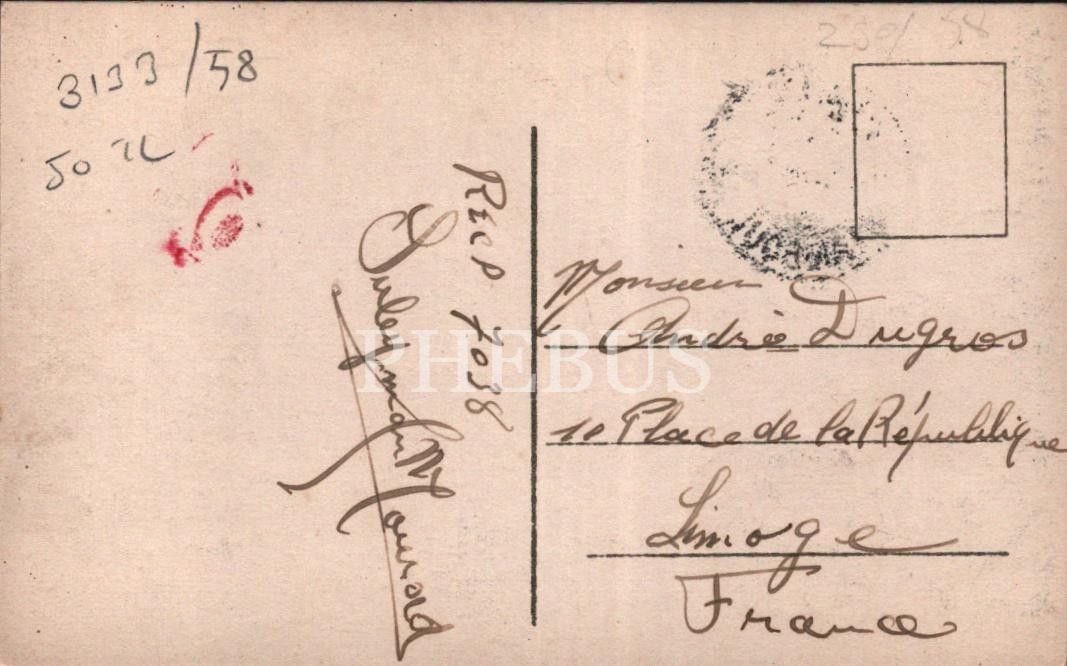 3133/58
50 TL
250/58
RECP 7038
Suleyman Mourad
PHEBUS
Monsieur
André Dugros
10 Place de la République
Limoge
France